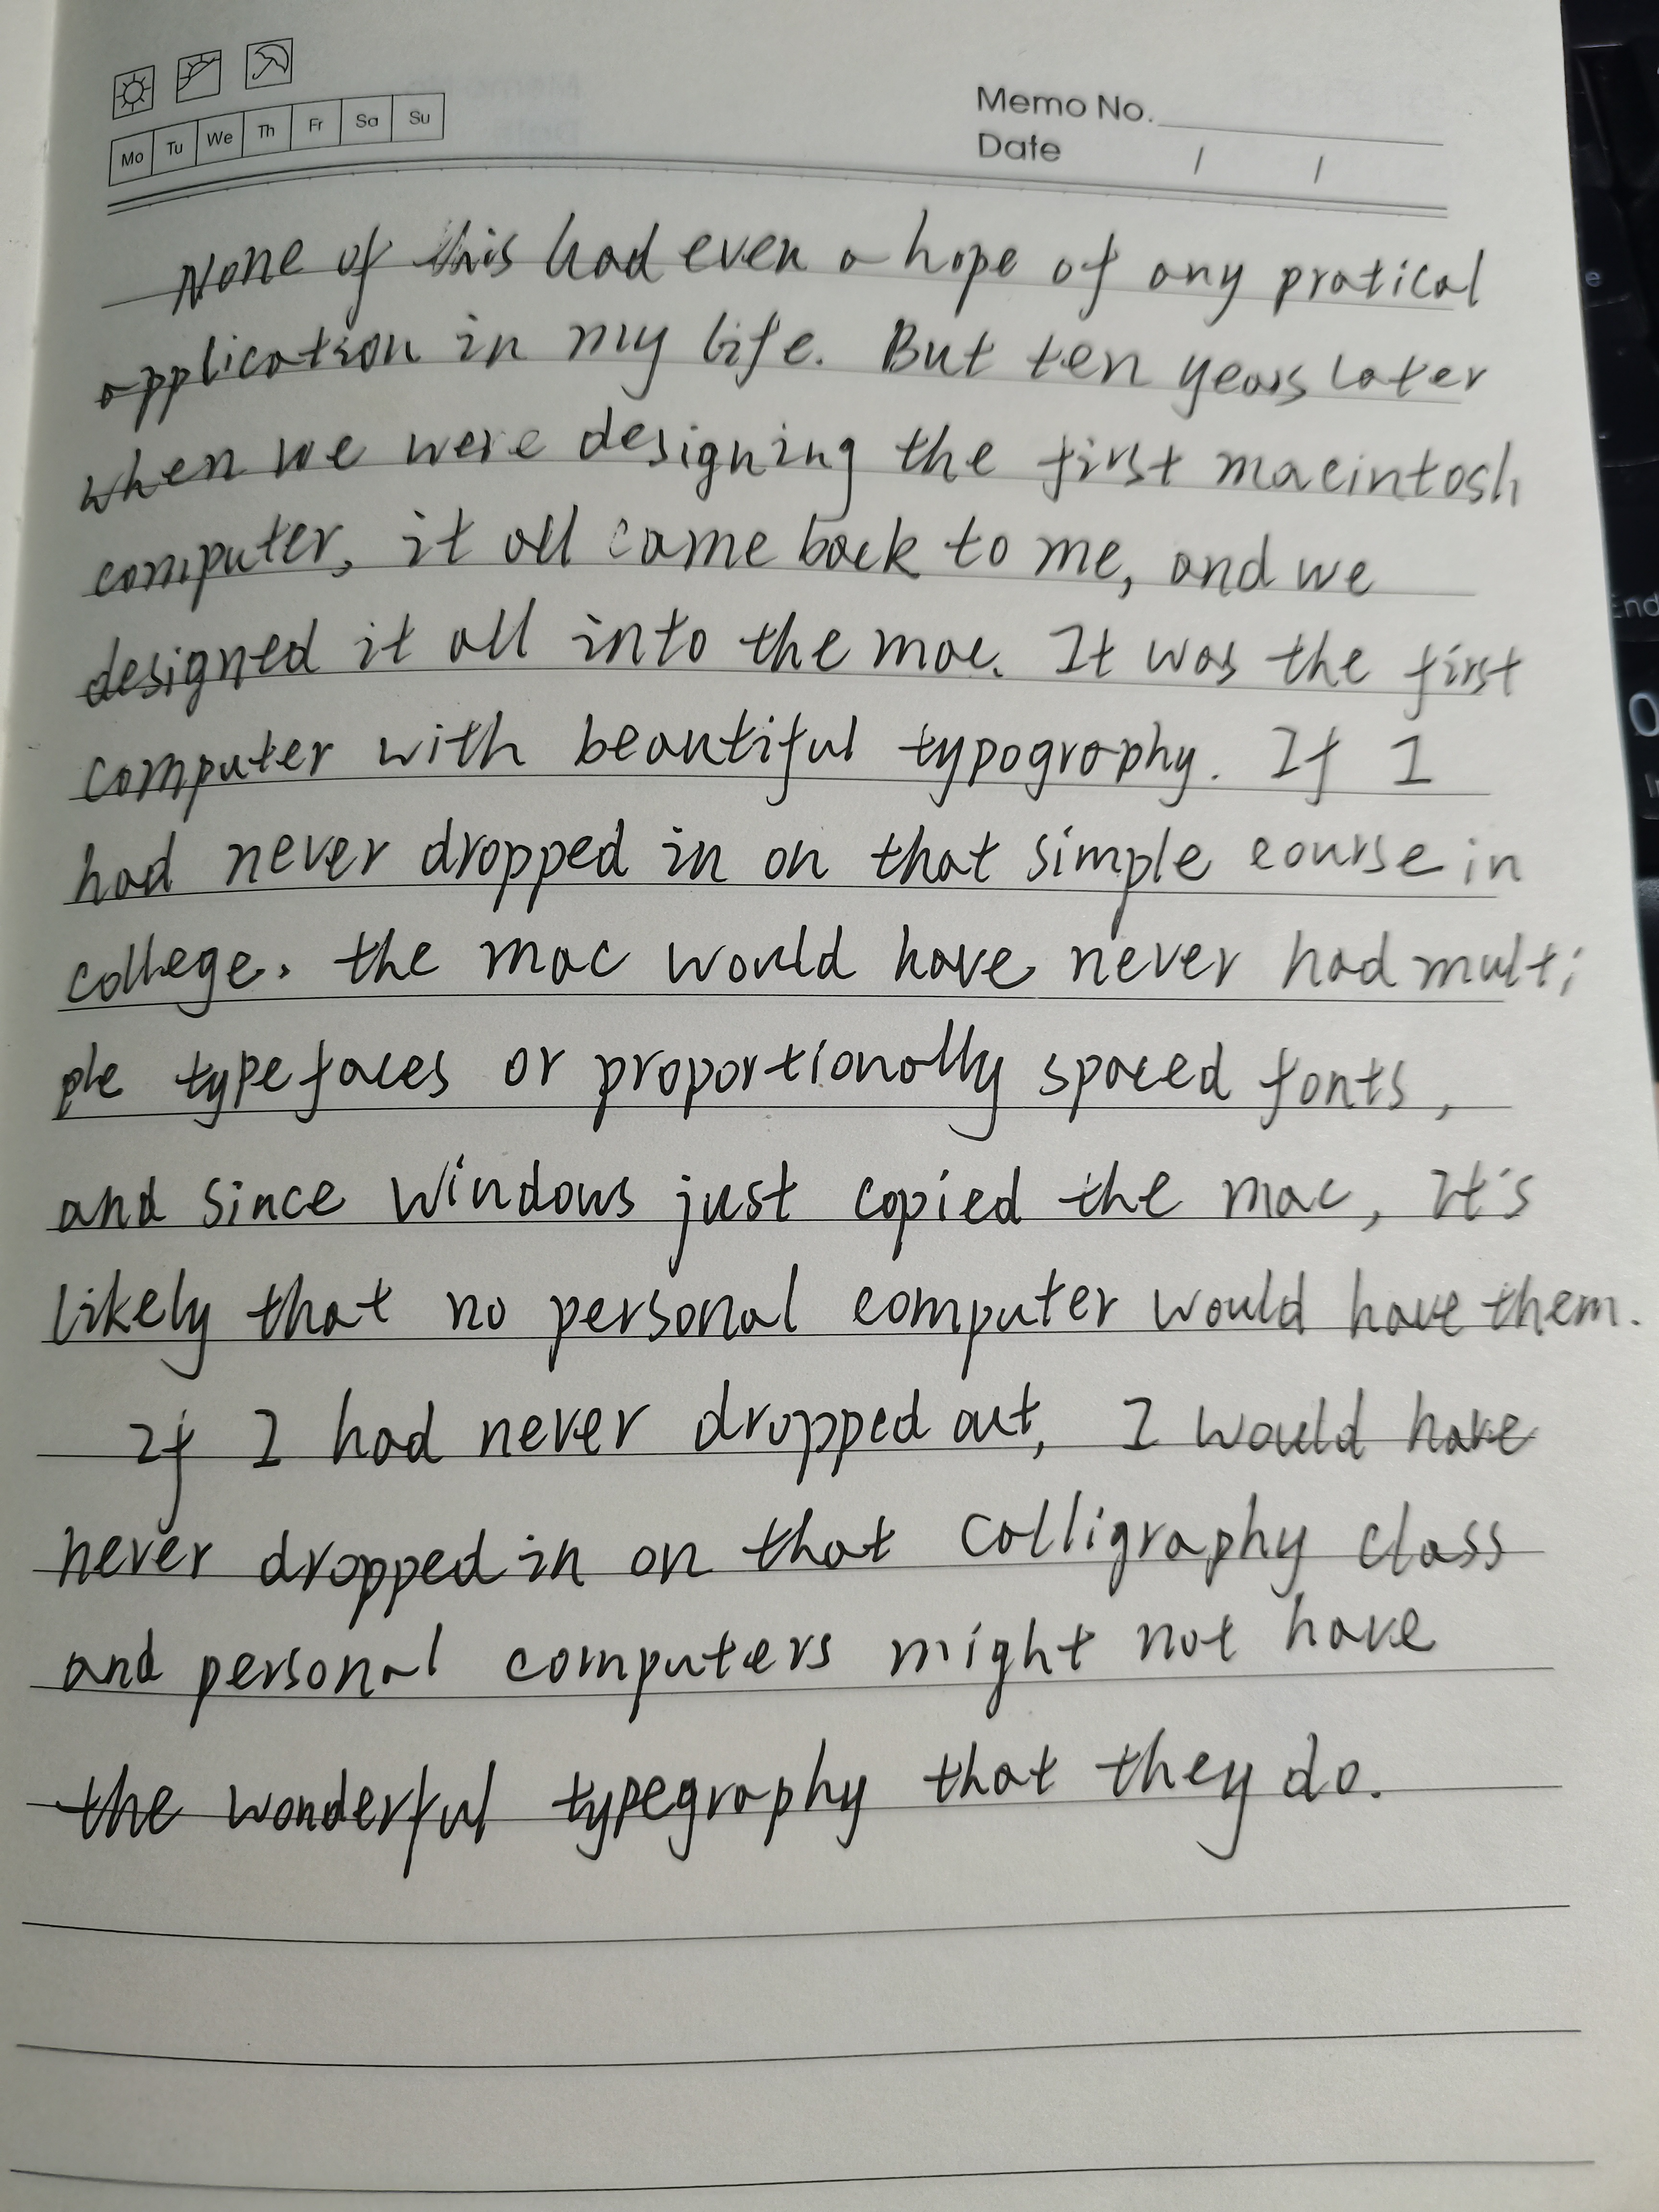 Mo Tu We Th Fr Sa Su
Memo No.
Date / /
None of this had even a hope of any pratical
application in my life. But ten years later
when we were designing the first macintosh
computer, it all came back to me, and we
designed it all into the mac. It was the first
computer with beautiful typography. If I
had never dropped in on that simple course in
college. the mac would have never had multi
ple typefaces or proportionally spaced fonts,
and since windows just copied the mac, It's
likely that no personal computer would have them.
If I had never dropped out, I would have
never dropped in on that calligraphy class
and personal computers might not have
the wonderful typegraphy that they do.
End